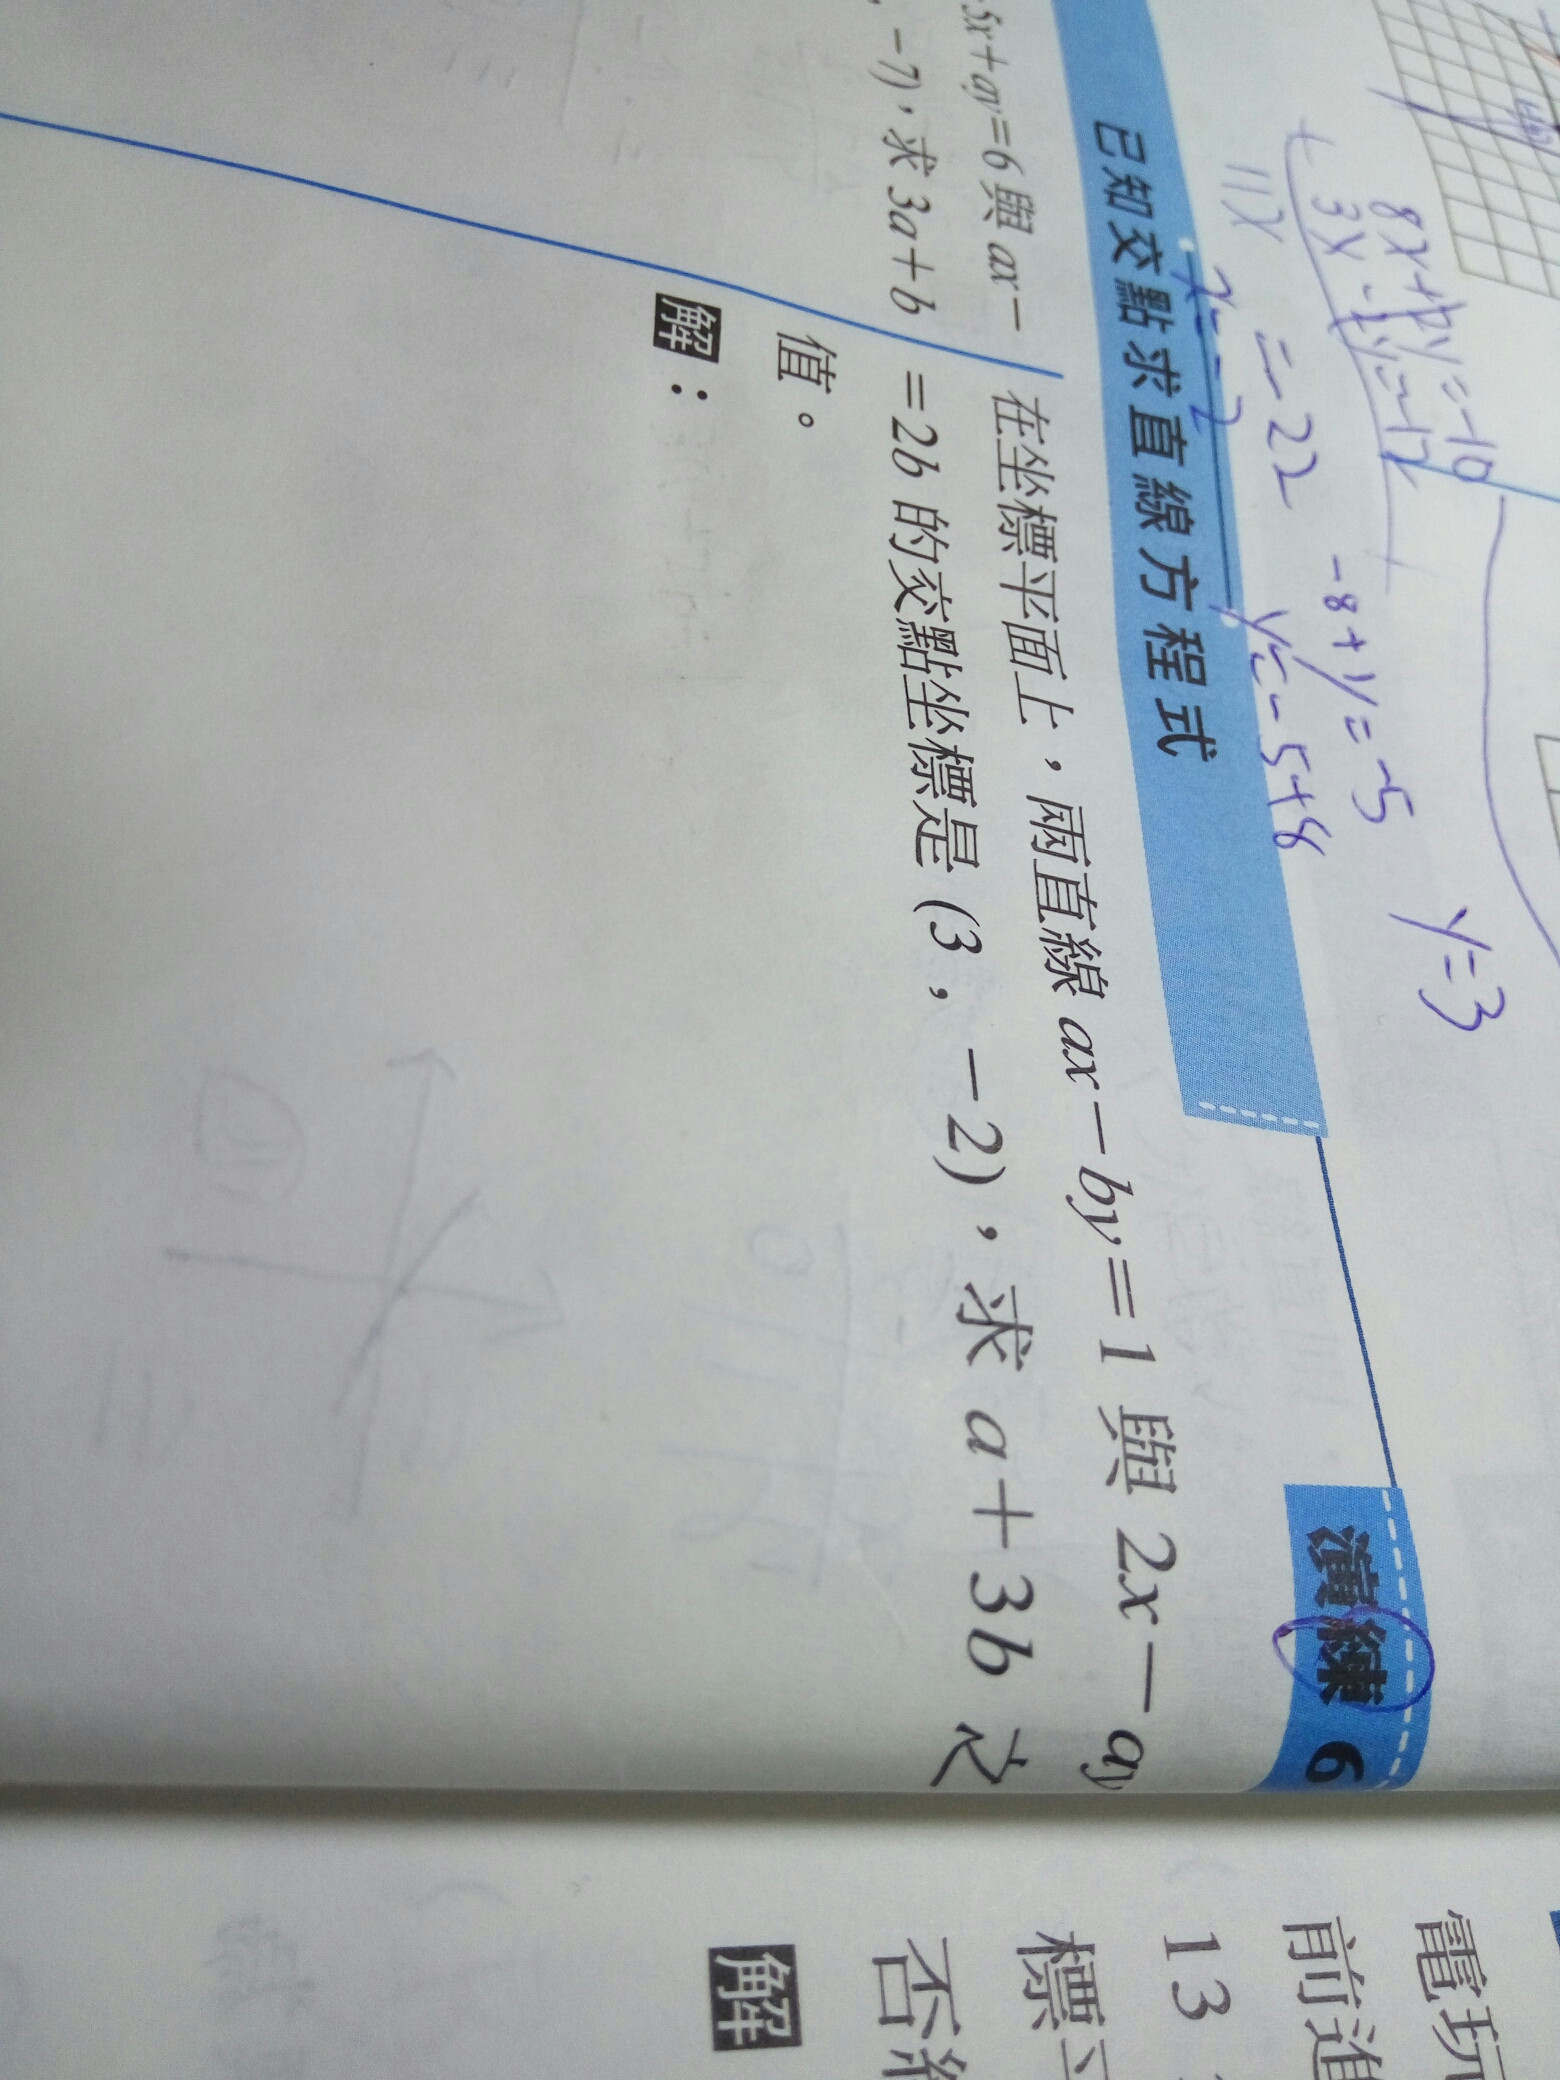 8x+y=-10
+ 3x-y=-12
11x =-22
x=-2
-8+y=-5
y=-5+8
y=3
已知交點求直線方程式
演練 6
5x+ay=6與ax-
,-7),求3a+b
在坐標平面上,兩直線ax-by=1與2x-ay
=2b的交點坐標是(3,-2),求a+3b之
值。
解:
電玩
前進
13
標
否
解